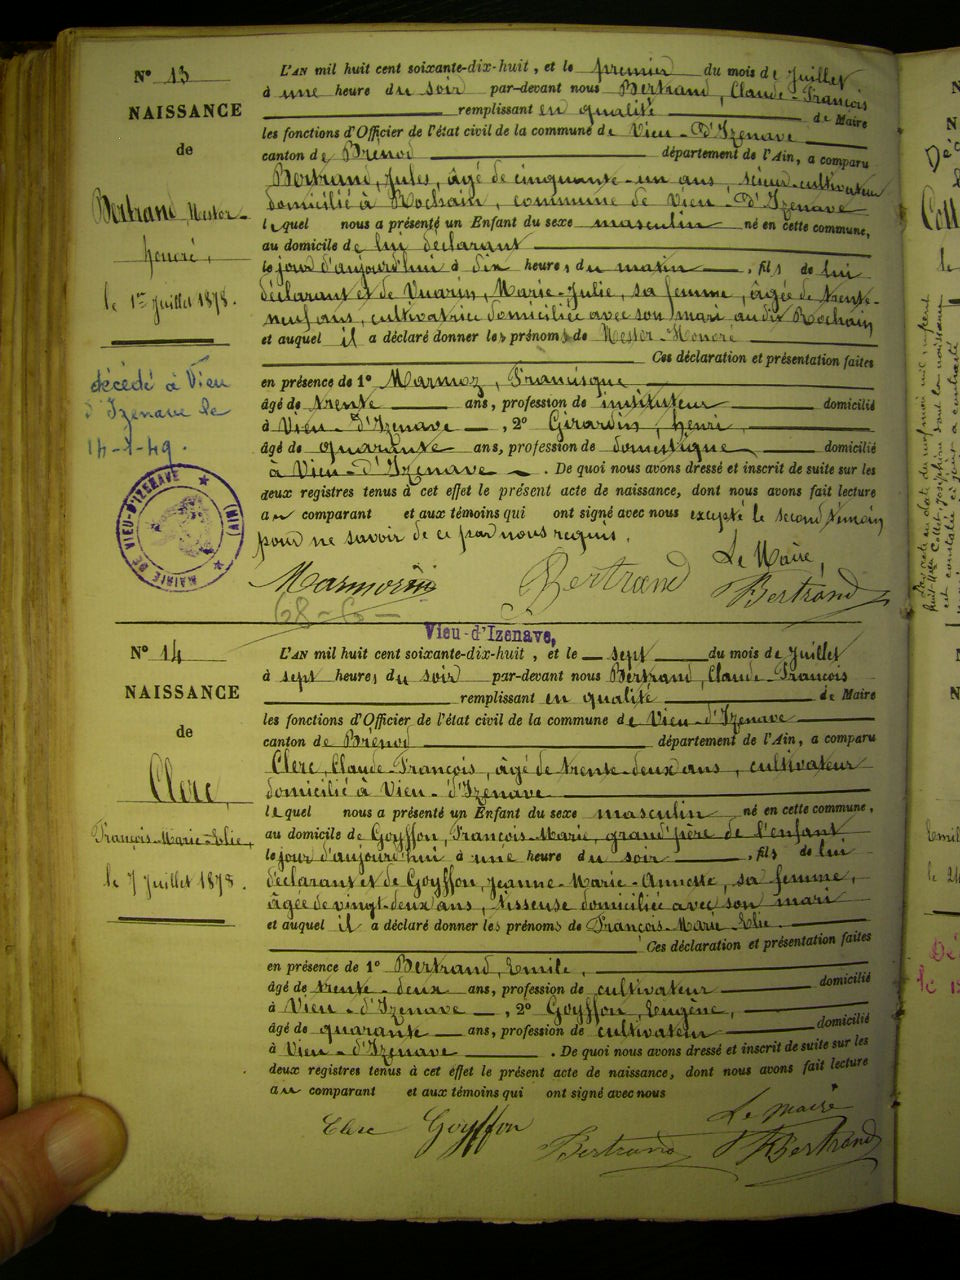 N° 13
NAISSANCE
de
Bertrand, Nestor-
Honoré,
le 1er Juillet 1878.
décédé à Vieu
d'Izenave le
14-1-49.
MAIRIE DE VIEU-D'IZENAVE (AIN)
L'AN mil huit cent soixante-dix-huit, et le premier du mois de Juillet
à une heure du soir par-devant nous Bertrand, Claude-François
remplissant en qualité de Maire
les fonctions d'Officier de l'état civil de la commune de Vieu-d'Izenave
canton de Brénod département de l'Ain, a comparu
Bertrand, Jules, âgé de cinquante-un ans, cultivateur
domicilié à Rochain, commune de Vieu-d'Izenave
lequel nous a présenté un Enfant du sexe masculin né en cette commune,
au domicile de lui déclarant
le jour d'aujourd'hui à dix heures du matin, fils de lui
déclarant et de Vuarin, Marie-Julie, sa femme, âgée de trente-
neuf ans, cultivatrice domiciliée avec son mari au dit Rochain
et auquel il a déclaré donner les prénoms de Nestor-Honoré
Ces déclaration et présentation faites
en présence de 1° Marmoz, Francisque
âgé de trente ans, profession de instituteur domicilié
à Vieu-d'Izenave, 2° Girardin, Henri,
âgé de quarante ans, profession de domestique domicilié
à Vieu-d'Izenave. De quoi nous avons dressé et inscrit de suite sur les
deux registres tenus à cet effet le présent acte de naissance, dont nous avons fait lecture
au comparant et aux témoins qui ont signé avec nous excepté le second témoin
pour ne savoir de ce par nous requis.
Le Maire,
Bertrand Bertrand
68-6-
Vieu-d'Izenave,
N° 14
NAISSANCE
de
Clerc,
François-Marie-Elie,
le 7 Juillet 1878.
L'AN mil huit cent soixante-dix-huit, et le sept du mois de Juillet
à sept heures du soir par-devant nous Bertrand, Claude-François
remplissant en qualité de Maire
les fonctions d'Officier de l'état civil de la commune de Vieu-d'Izenave
canton de Brénod département de l'Ain, a comparu
Clerc, Claude-François, âgé de trente-deux ans, cultivateur
domicilié à Vieu-d'Izenave
lequel nous a présenté un Enfant du sexe masculin né en cette commune,
au domicile de Goyffon, François-Marie, grand'père de l'enfant
le jour d'aujourd'hui à une heure du soir, fils de lui
déclarant et de Goyffon, Jeanne-Marie-Annette, sa femme,
âgée de vingt-deux ans, tisseuse domiciliée avec son mari
et auquel il a déclaré donner les prénoms de François-Marie Elie
Ces déclaration et présentation faites
en présence de 1° Bertrand, Emile,
âgé de trente-deux ans, profession de cultivateur domicilié
à Vieu-d'Izenave, 2° Goyffon, Eugène,
âgé de quarante ans, profession de cultivateur domicilié
à Vieu-d'Izenave. De quoi nous avons dressé et inscrit de suite sur les
deux registres tenus à cet effet le présent acte de naissance, dont nous avons fait lecture
au comparant et aux témoins qui ont signé avec nous
Le maire
Clerc Goyffon Bertrand Bertrand